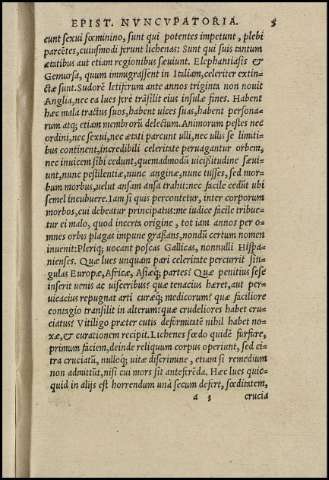 EPIST. NVNCVPATORIA. 5
eunt sexui fœminino, sunt qui potentes impetunt, plebi
parcẽtes, cuiusmodi ferunt lichenas: Sunt qui suis tantum
ætatibus aut etiam regionibus sæuiunt. Elephantiasis &
Gemursa, quum immigrassent in Italiam, celeriter extin-
ctæ sunt. Sudorẽ letiferum ante annos triginta non nouit
Anglia, nec ea lues ferè trãsilijt eius insulæ fines. Habent
hæc mala tractus suos, habent uices suas, habent persona-
rum atq; etiam membrorũ delectum. Animorum pestes nec
ordini, nec sexui, nec ætati parcunt ulli, nec ullis se limiti-
bus continent, incredibili celeritate peruagantur orbem,
nec inuicem sibi cedunt, quemadmodũ uicissitudine sæui-
unt, nunc pestilentiæ, nunc anginæ, nunc tusses, sed mor-
bum morbus, uelut ansam ansa trahit: nec facile cedũt ubi
semel incubuere. Iam si quis percontetur, inter corporum
morbos, cui debeatur principatus: me iudice facile tribue-
tur ei malo, quod incerta origine, tot iam annos per o-
mnes orbis plagas impune grassans, nondũ certum nomen
inuenit: Pleriq; uocant poscas Gallicas, nonnulli Hispa-
nienses. Quæ lues unquam pari celeritate percurrit sin-
gulas Europæ, Africæ, Asiæq; partes? Quæ penitius sese
inserit uenis ac uisceribus? quæ tenacius hæret, aut per-
uicacius repugnat arti curæq; medicorum? quæ facilius
contagio transilit in alterum? quæ crudeliores habet cru-
ciatus? Vitiligo præter cutis deformitatẽ nihil habet no-
xæ, & curationem recipit. Lichenes fœdo quidẽ furfure,
primum faciem, deinde reliquum corpus operiunt, sed ci-
tra cruciatũ, nulloq; uitæ discrimine, etiam si remedium
non admittũt, nisi cui mors sit anteferẽda. Hæc lues quic-
quid in alijs est horrendum unà secum defert, fœditatem,
a 3 crucia